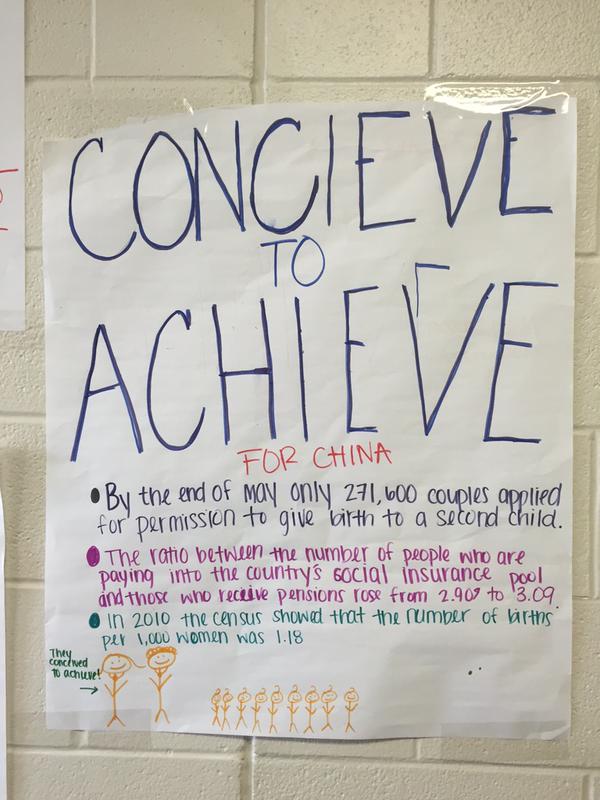 CONCIEVE
TO
ACHIEVE
FOR CHINA
• By the end of May only 271,600 couples applied
for permission to give birth to a second child.
• The ratio between the number of people who are
paying into the country's social insurance pool
and those who receive pensions rose from 2.907 to 3.09.
• In 2010 the census showed that the number of births
per 1,000 women was 1.18
They
concived
to achieve!